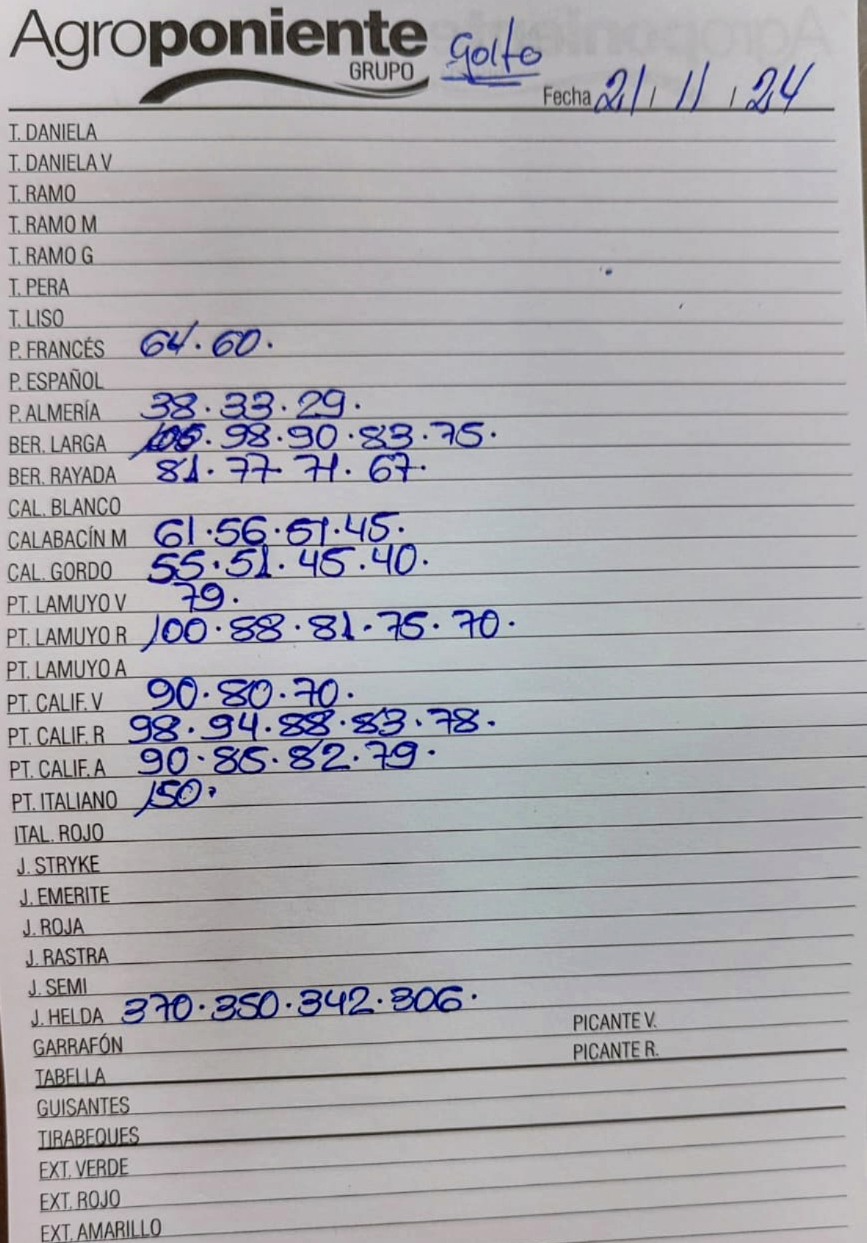 Agroponiente
GRUPO
Golfo
Fecha 21 / 11 / 24
T. DANIELA
T. DANIELA V
T. RAMO
T. RAMO M
T. RAMO G
T. PERA
T. LISO
P. FRANCÉS 64. 60.
P. ESPAÑOL
P. ALMERÍA 38. 33. 29.
BER. LARGA 105. 98. 90. 83. 75.
BER. RAYADA 81. 77. 71. 67.
CAL. BLANCO
CALABACÍN M 61. 56. 51. 45.
CAL. GORDO 55. 51. 45. 40.
PT. LAMUYO V 79.
PT. LAMUYO R 100. 88. 81. 75. 70.
PT. LAMUYO A
PT. CALIF. V 90. 80. 70.
PT. CALIF. R 98. 94. 88. 83. 78.
PT. CALIF. A 90. 85. 82. 79.
PT. ITALIANO 150.
ITAL. ROJO
J. STRYKE
J. EMERITE
J. ROJA
J. RASTRA
J. SEMI
J. HELDA 370. 350. 342. 306.
GARRAFÓN PICANTE V.
TABELLA PICANTE R.
GUISANTES
TIRABEQUES
EXT. VERDE
EXT. ROJO
EXT. AMARILLO